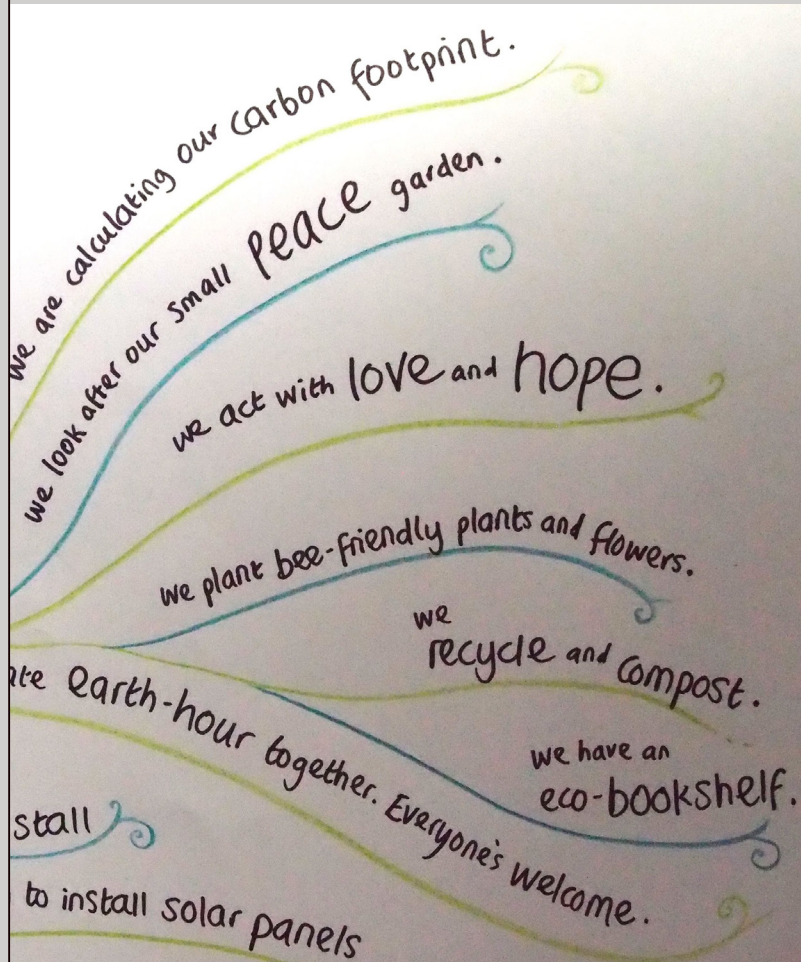 we are calculating our carbon footprint.
we look after our small peace garden.
we act with love and hope.
we plant bee-friendly plants and flowers.
we
recycle and compost.
we have an
eco-bookshelf.
earth-hour together. Everyone's welcome.
stall
to install solar panels